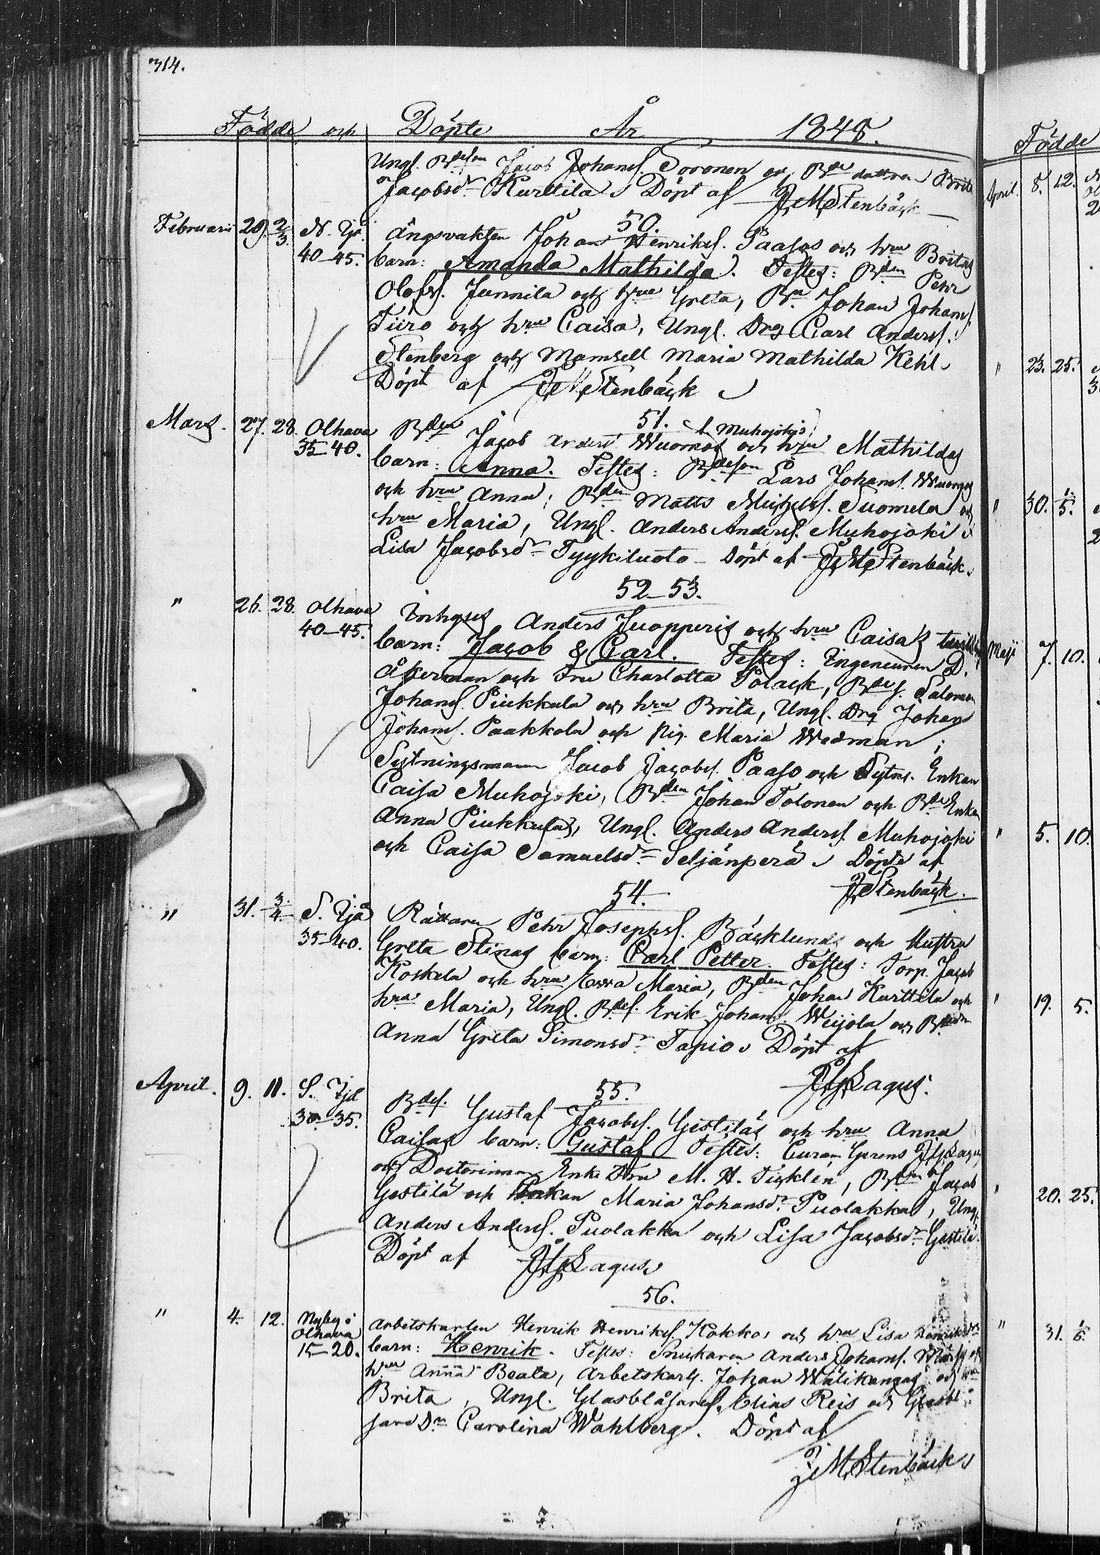 314.
Födde och Döpte År 1848.
Ungl. Bdeson Jacob Johans. Toronen o. Bde dattren Brita
Jacobsdr Kurttila. Döpt af J. M. Stenbäck
50.
Februari 29. 2/3 N. Ijå 40-45.
Ängsvakten Johan Henriks. Paasos och hru Britas
barn: Amanda Mathilda. Testes: Bden Pehr
Olofs. Junnila och hru Greta, Bde Johan Johans.
Tiiro och hru Caisa, Ungl. Drg Carl Anders.
Stenberg och Mamsell Maria Mathilda Kehl.
Döpt af J M Stenbäck
51.
Mars. 27. 28. Olhava 35-40.
Bden Jacob Anders Wuornos (l. Muhojokis) och hru Mathildas
barn: Anna. Testes: Bdeson Lars Johans.
och hru Anna, Bden Matts Michels. Tuomela och
hru Maria, Ungl. Anders Anders. Muhojoki o
Lisa Jacobsdr Tyykiluoto. Döpt af J. M. Stenbäck.
52-53.
" 26. 28. Olhava 40-45.
Inhyses Anders Juopperis och hru Caisas
barn: Jacob & Carl. Testes: Ingeneuren D.
Åkerman och Fru Charlotta Polack, Bdes. Salomon
Johans. Piukkula och hru Brita, Ungl. Drg Johan
Johans. Paakkola och pig. Maria Wedman;
Sytningsmann Jacob Jacobs. Paaso och Sytns. Enkan
Caisa Muhojoki, Bden Johan Tolonen och Bde Enkan
Anna Piukkula, Ungl. Anders Anders. Muhojoki
och Caisa Samuelsdr Seljänperä. Döpte af
J Stenbäck.
54.
" 31. 3/4 S. Ijå 35-40.
Rättaren Pehr Josephs. Bäcklunds och Hustru
Greta Stinas barn: Carl Petter. Testes: Torp. Jacob
Koskela och hru Ewa Maria, Bden Johan Kurttila och
hru Maria, Ungl. Bdes. Erik Johans. Weijola och
Anna Greta Simonsdr Tapio. Döpt af
Lagus.
55.
April. 9. 11. S. Ijå 30-35.
Bdes. Gustaf Jacobs. Gestiläs och hru Anna
Caisas barn: Gustaf Testes: Lagus
och Doctorinnan Enke Fru M. H. Ticklén, Bden Jacob
Gestilä och Enkan Maria Johansdr Puolakka, Ungl.
Anders Anders. Puolakka och Lisa Jacobsdr Gestilä.
Döpt af Lagus.
56.
" 4. 12. Nyby i Olhava 15-20.
Arbetskarlen Henrik Henriks Kokkos och hru Lisa
barn: Henrik. Testes: Snickaren Anders Johans.
hru Anna Beata, Arbetskarls. Johan Wälikangas och hru
Brita, Ungl. Glasblåsares. Elias Reis och Glasblå
sare Dr Carolina Wahlberg. Döpt af
J. M. Stenbäck.
Födde
April 8. 12.
" 23. 25.
" 30.
Maji 7. 10.
" 5. 10.
" 19. 5.
" 20. 25.
" 31.